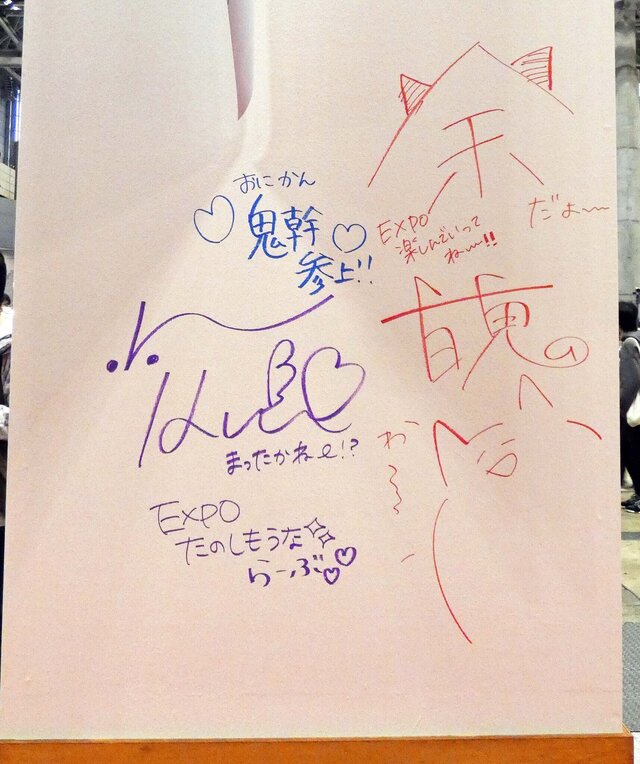 余
だよ〜
EXPO
楽しんでいって
ねー!!
おにかん
鬼幹
参上!!
百鬼の
まったかねe!?
EXPO
たのしもうな
らーぶ